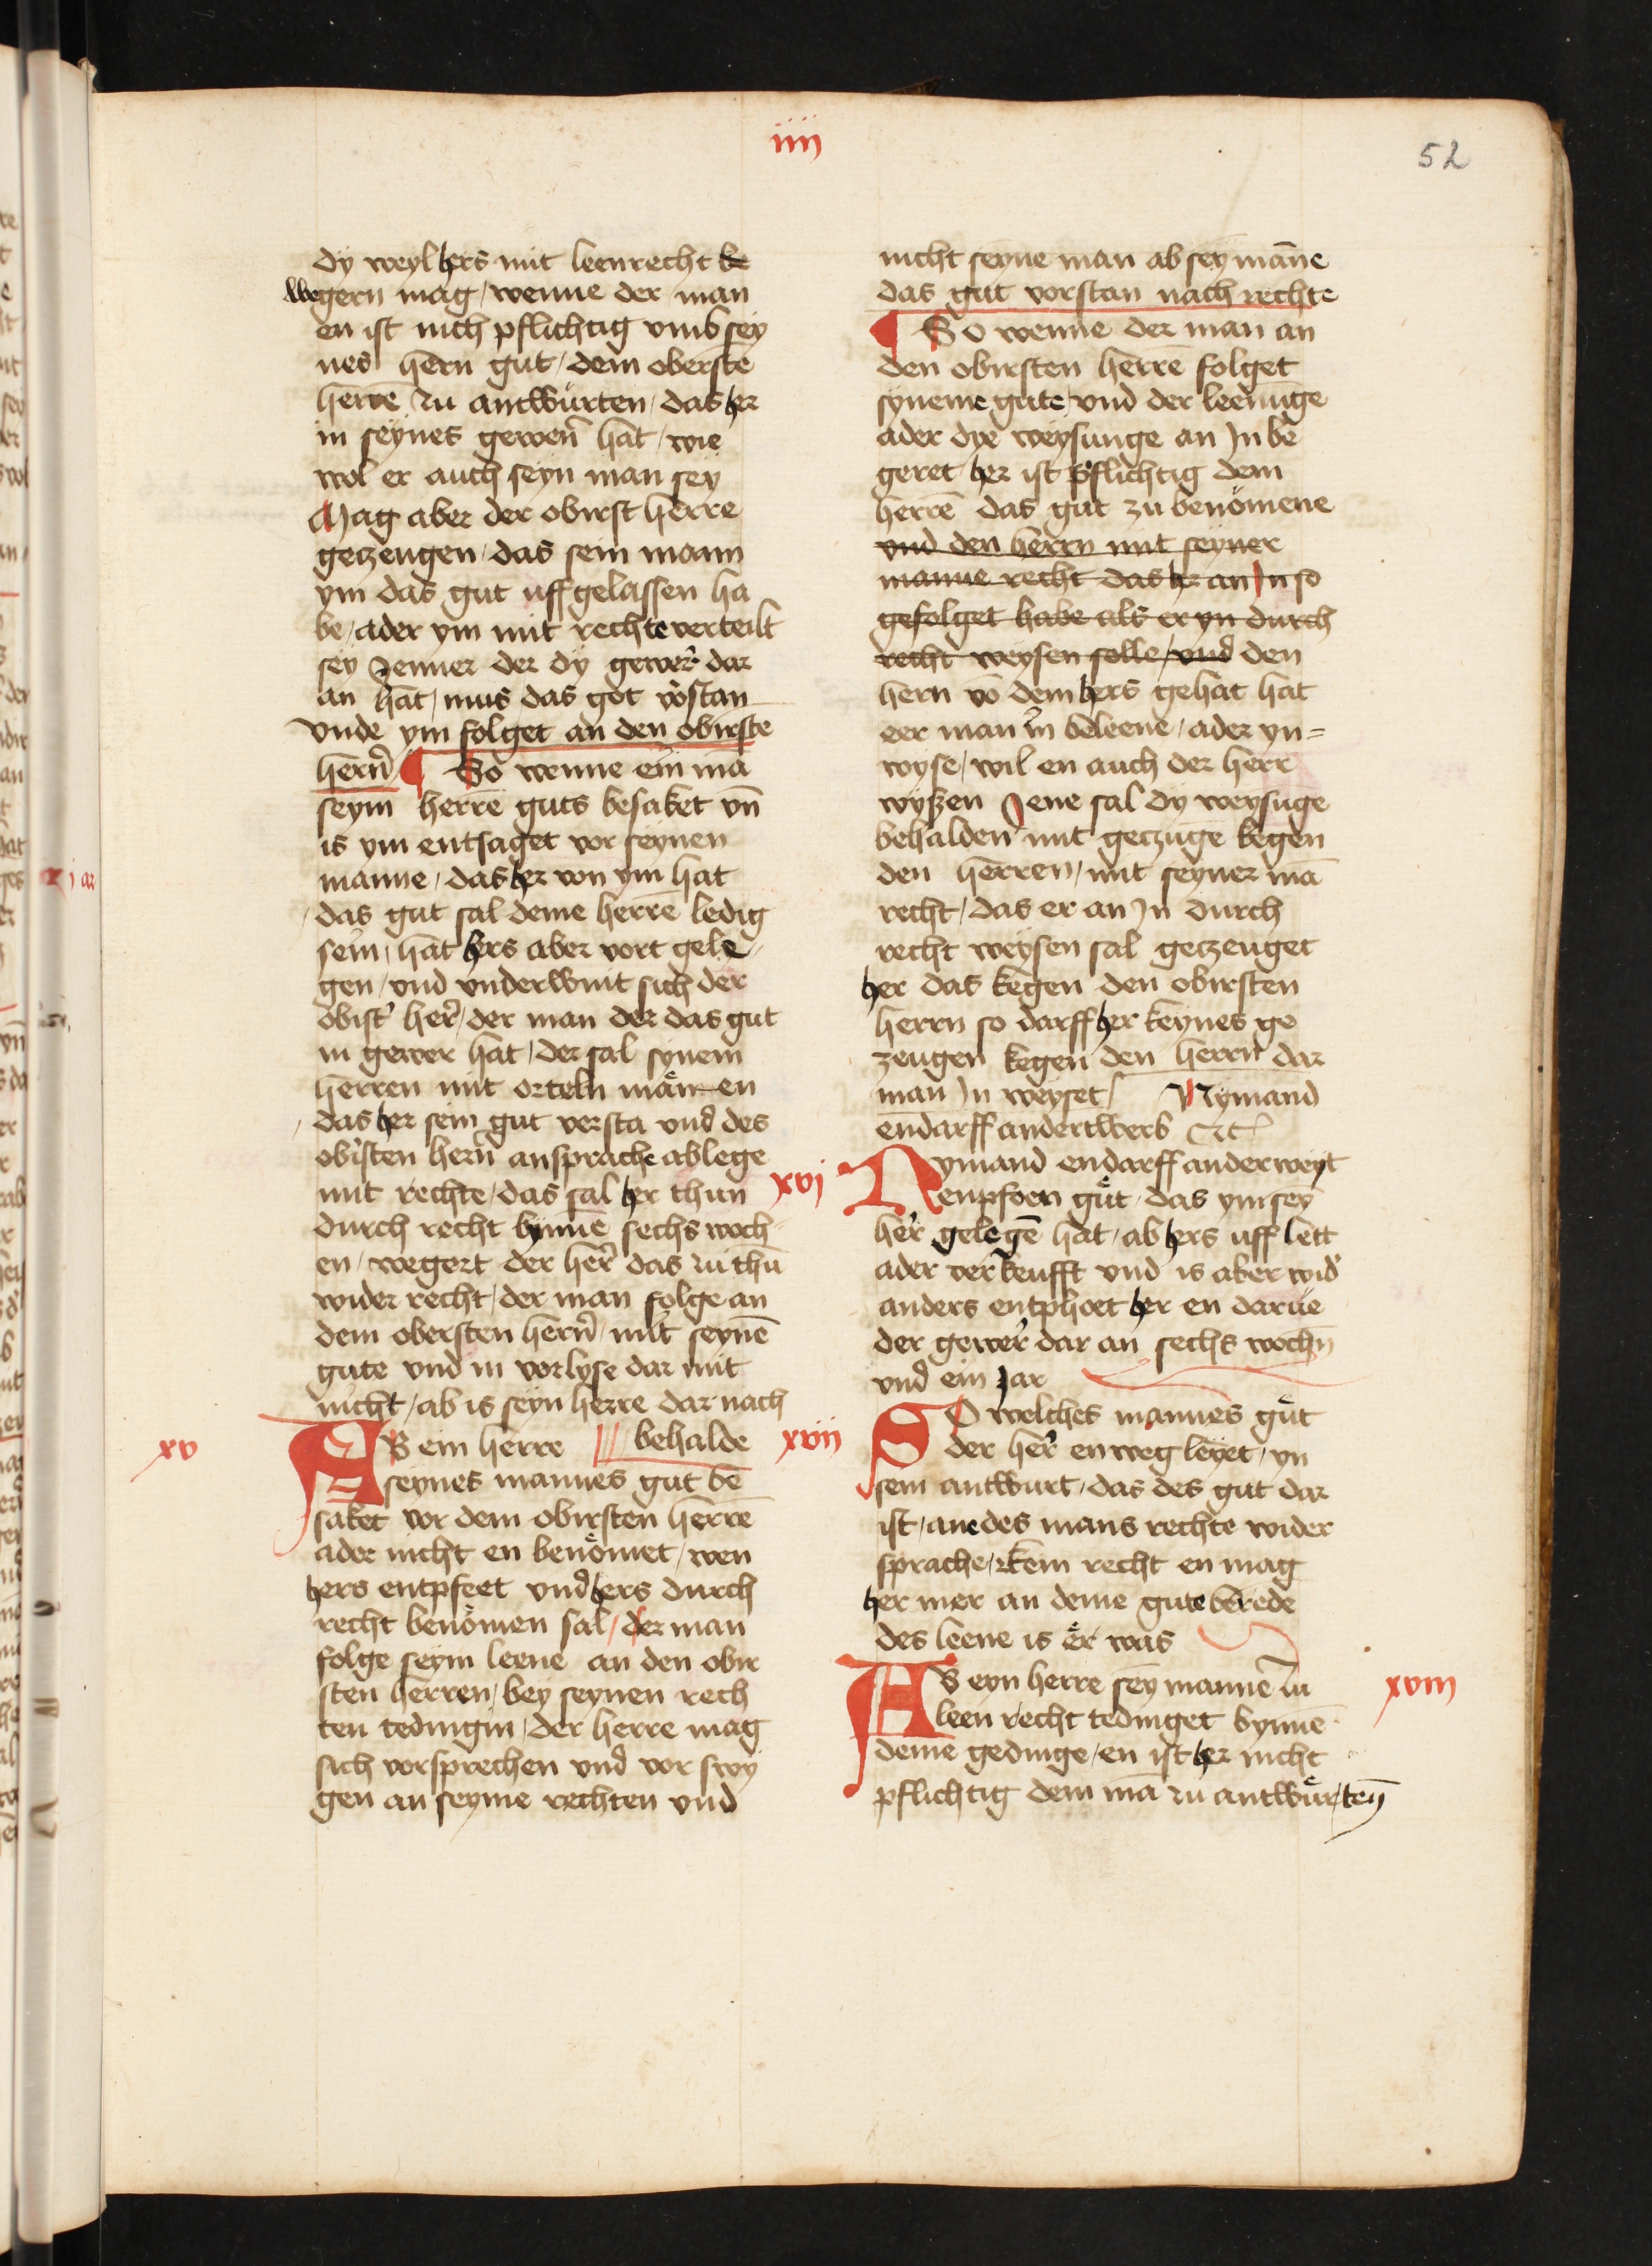 iiii
52
dy weyl hers mit leenrecht be
wegern mag / wenne der man
en ist nich pflichtig vmb sey
nes hern gut / dem oberste
herrē zu antwurten / das her
in seynes gewer̄ hat / wie
wol er auch seyn man sey
Mag aber der obirst herre
getzeugen / das sein mann
ym das gut uffgelassen ha
be / ader ym mit rechte verteilt
sey Jenner der dy gewer dar
an hat / mus das got vorstan
vnde ym folget an den obirste
hern̄ ¶ So wenne ein mā
seym herrē guts besaket vn̄
is ym entsaget vor seynen
manne / das her von ym hat
das gut sal deme herrē ledig
sein / hat hers aber vort gele
gen / vnd vnderwint sich der
obist her̄ / der man der das gut
in gewer hat / der sal synem
herren mit orteln manen
das her sein gut versta vnd des
obisten hern̄ ansprache ablege
mit rechte / das sal her thun
durch recht bynnē sechs woch
en / wegert der her̄ das zu thū
wider recht / der man folge an
dem obersten hern̄ / mit seynē
gute vnd in vorlyse dar mit
nicht / ab is seyn herre dar nach
behalde
xv
AB ein herre
seynes mannes gut be
saket vor dem obirsten herrē
ader nicht en benomet / wen
hers entpfeet vnd hers durch
recht benomen sal / der man
folge seym leene an den obir
sten herren / bey seynen rech
ten tedingin / der herre mag
sich vorsprechen vnd vor swy
gen an seyme rechten vnd
nicht seyne man ab sey manne
das gut vorstan nach rechte
¶ So wenne der man an
den obirsten herrē folget
syneme gute / vnd der leenuge
ader dye weysunge an Jn be
geret / her ist pflichtig dem
herrē das gut zu benomene
vnd den herrn mit seyner
manne recht das her an Jn so
gefolget habe als er yn durch
recht weysen solle / vnd den
hern vō dem hers gehat hat
eer man in beleene / ader yn=
wyse / wil en auch der herr
wyszen Jene sal dy weysuge
behalden mit getzuge kegen
den herren / mit seyner mā
recht / das er an Jn durch
recht weysen sal getzeuget
her das kegen den obirsten
herrn so darff her keynes ge
zeugen kegen den herrn dar
man Jn weyset / Nymand
endarff andertwerb etc
xvj
Nymand endarff anderweyt
enpfoen gut / das ym sey
her gelegē hat / ab hers uff lett
ader verkeufft vnd is aber wid
anders entphoet her en darue
der gewer dar an sechs wochn̄
vnd ein jar
xvij
SO welches mannes gut
der her enweg leyet / yn
sem antwurt / das des gut dar
ist / ane des mans rechte wider
sprache / kein recht en mag
her mer an deme gute berede
des leene is er was
xviij
AB eyn herre sey manne zu
leen recht tedinget bynnē
deme gedinge / en ist her nicht
pflichtig dem mā zu antwurtēn